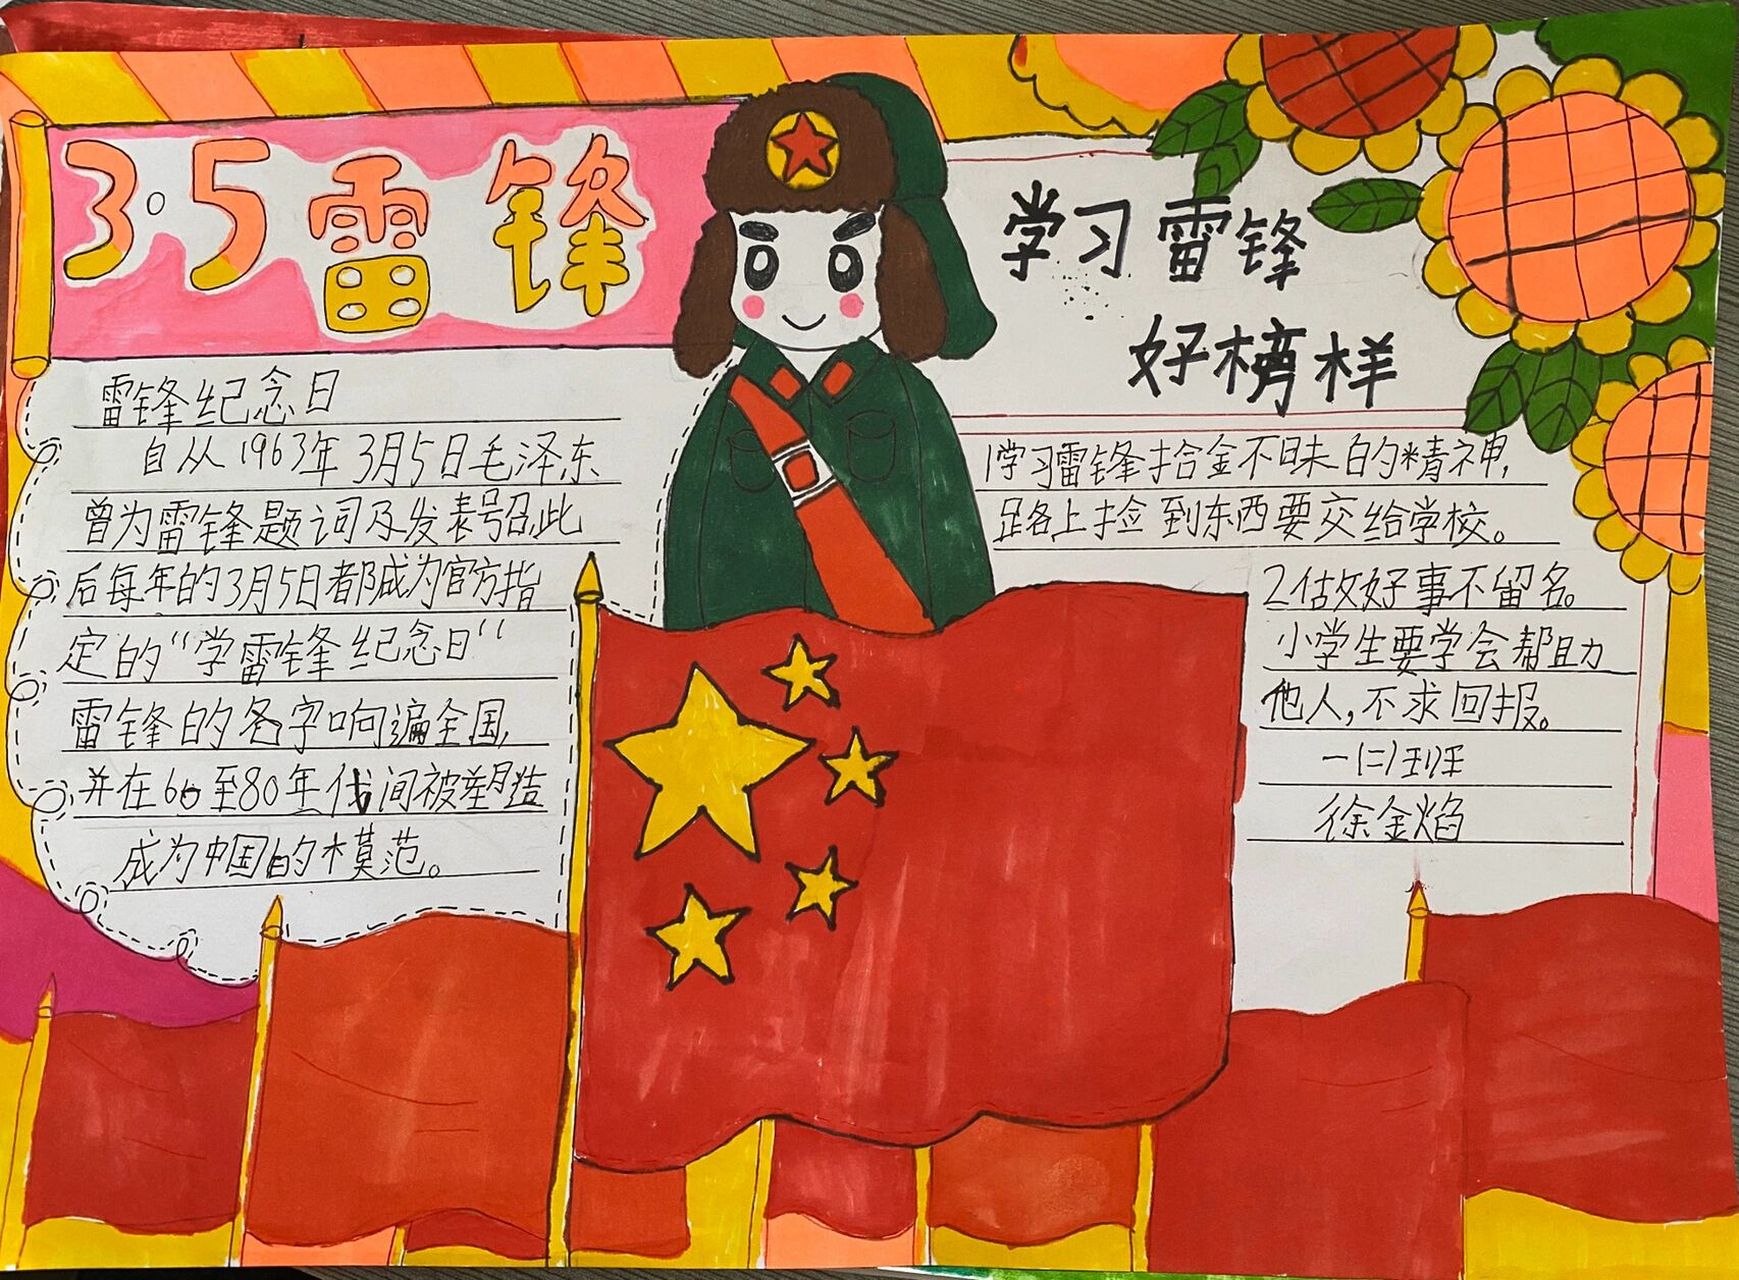 3·5雷锋
雷锋纪念日
自从1963年3月5日毛泽东
曾为雷锋题词及发表号召此
后每年的3月5日都成为官方指
定的“学雷锋纪念日“
雷锋的名字响遍全国,
并在60至80年代间被塑造
成为中国的模范。
学习雷锋
好榜样
1学习雷锋拾金不昧的精神,
路上捡到东西要交给学校。
2做好事不留名。
小学生要学会帮助
他人,不求回报。
一(二)班
徐金焰